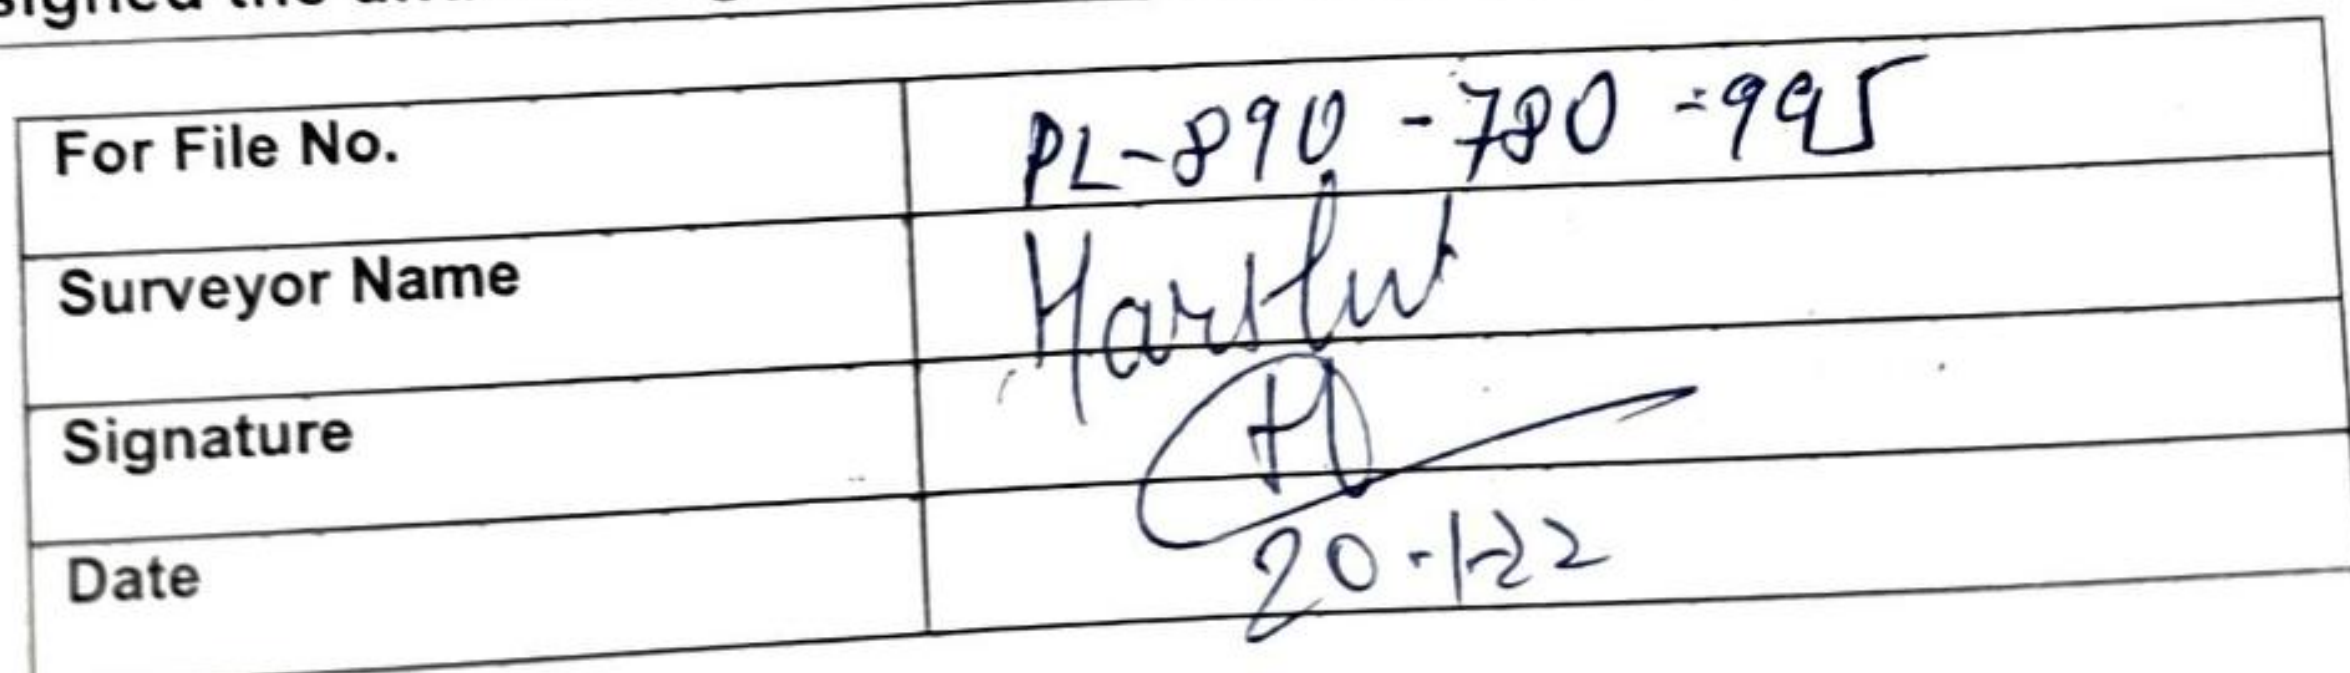 signed the
For File No. PL-890-780-995
Surveyor Name Harshit
Signature H
Date 20-1-22